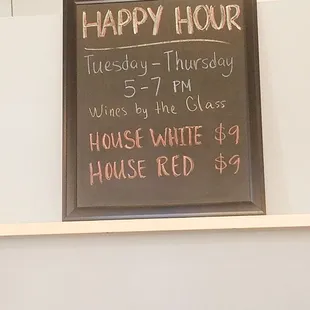 HAPPY HOUR
Tuesday - Thursday
5-7 PM
Wines by the Glass
HOUSE WHITE $9
HOUSE RED $9